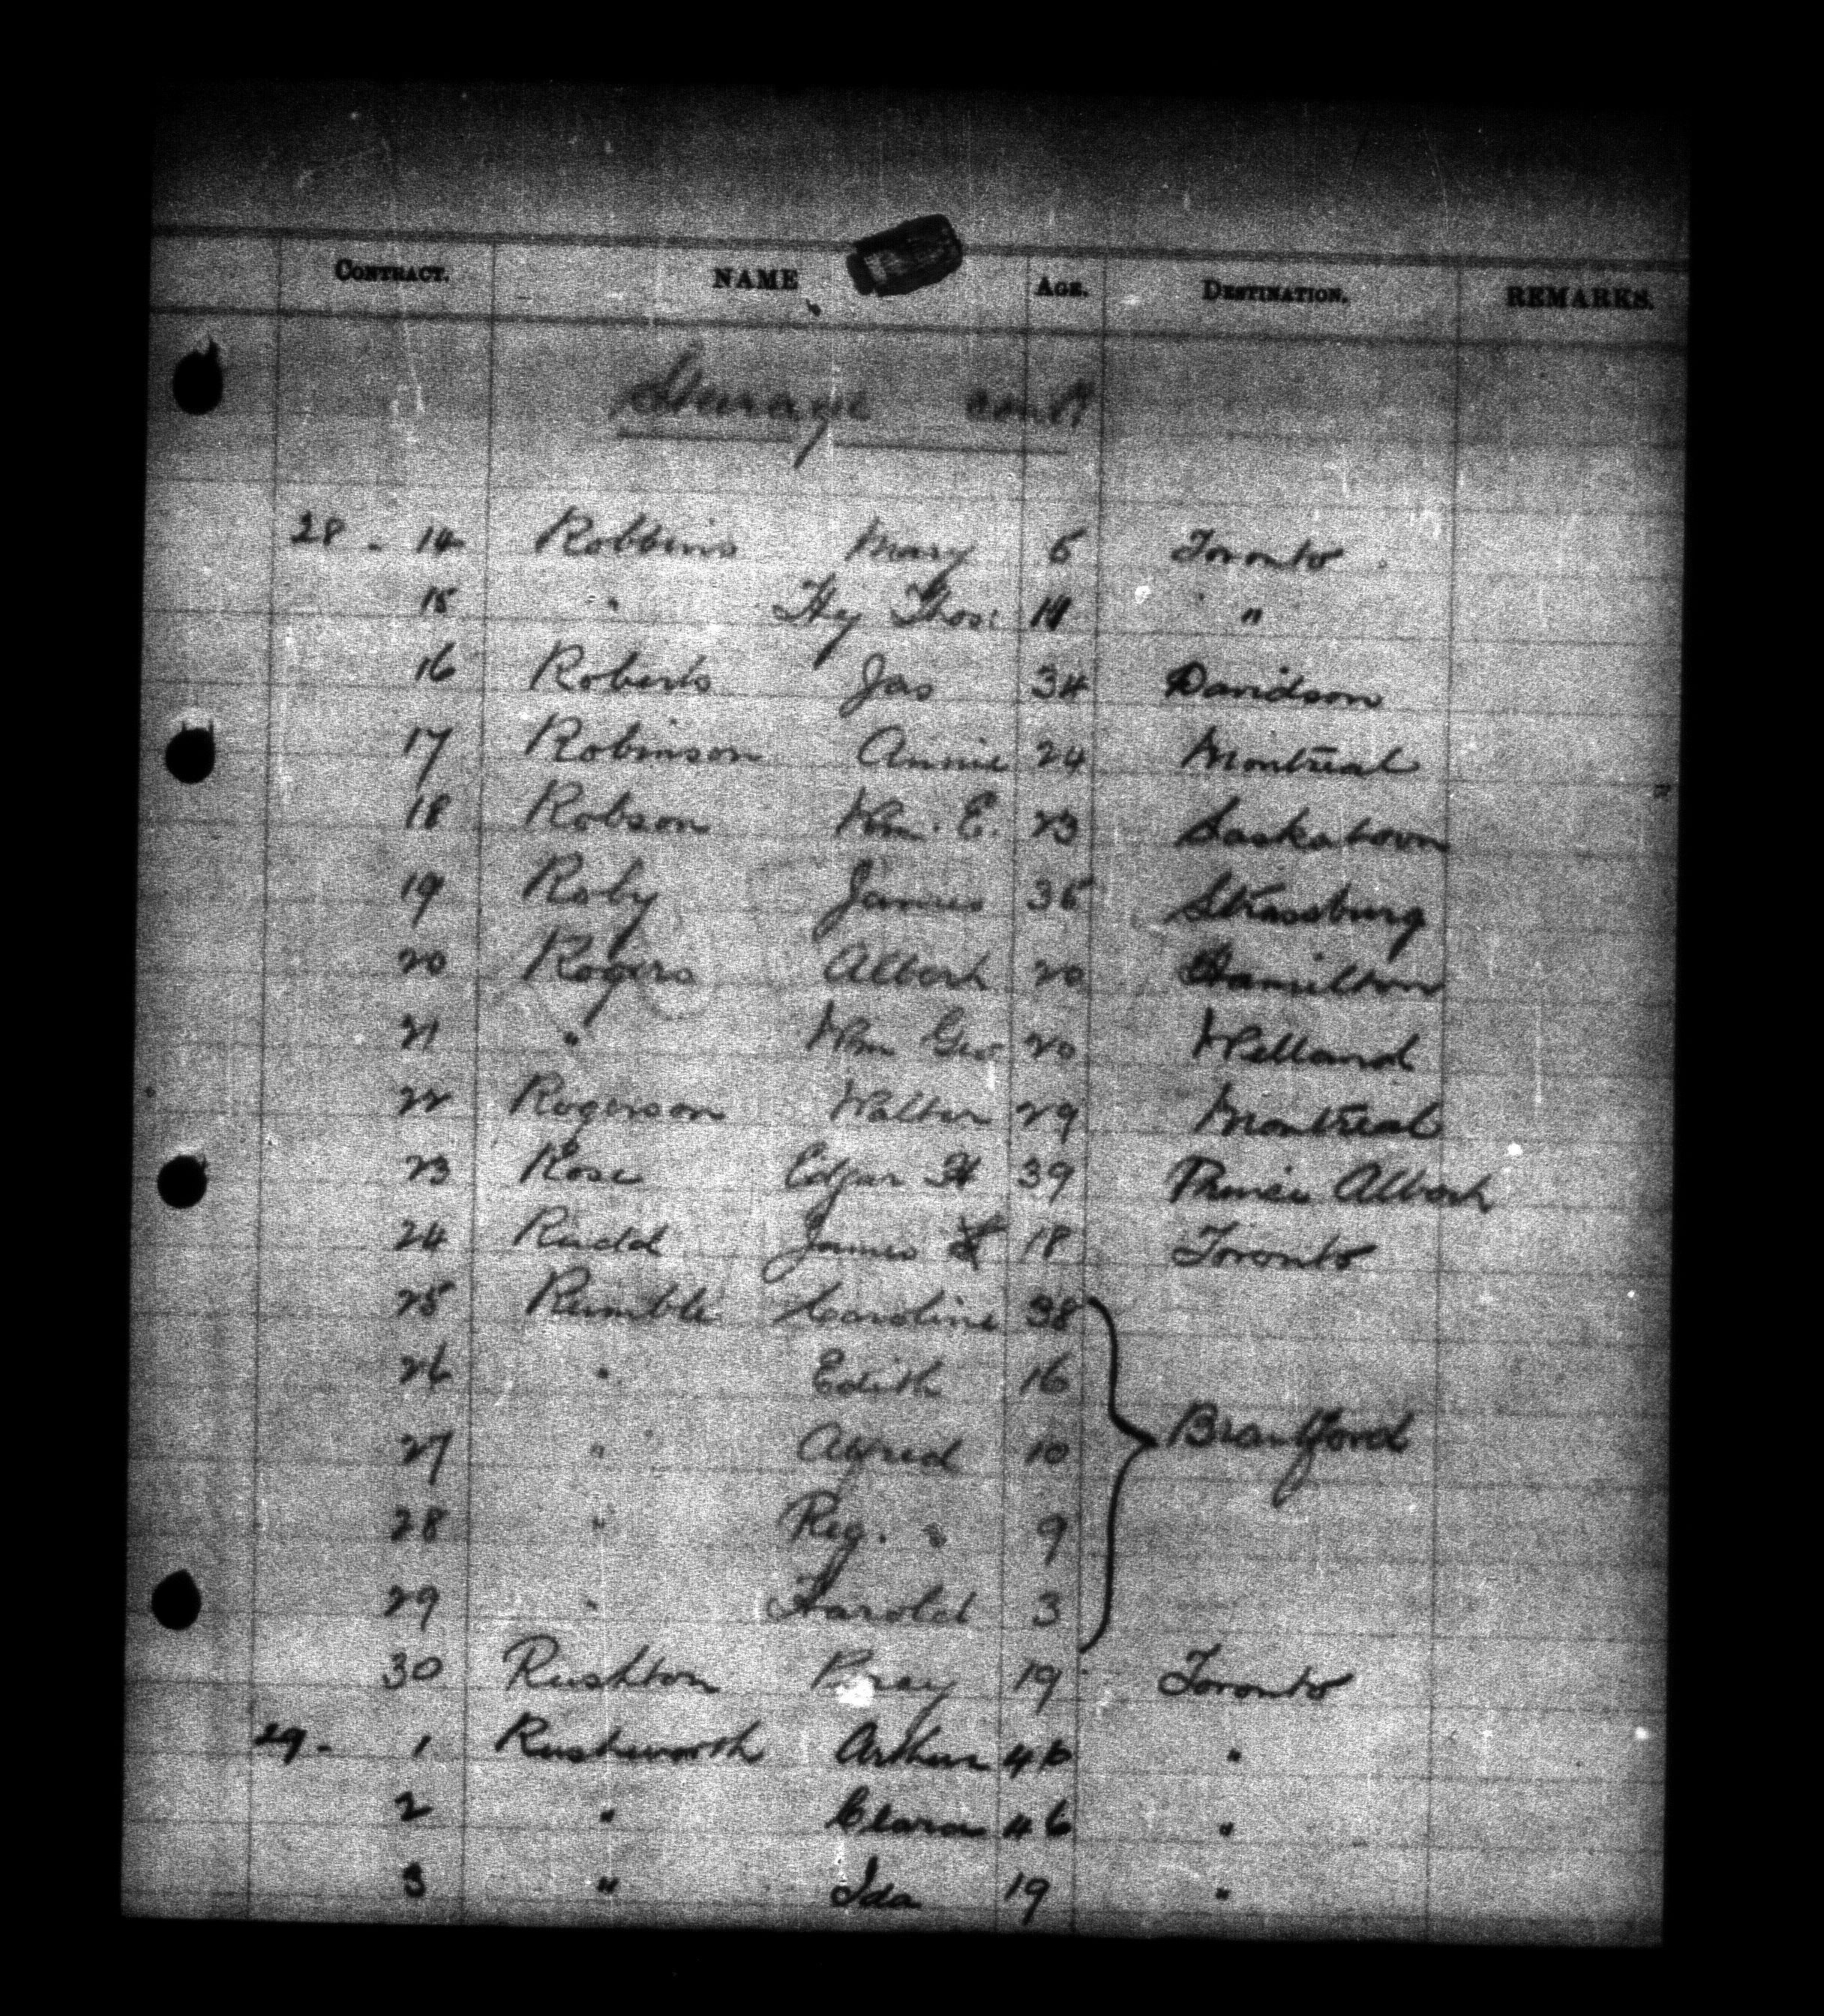 CONTRACT. NAME AGE. DESTINATION. REMARKS.
Steerage cont'd
28 - 14 Robbins Mary 5 Toronto
15 " Hy Thos: 11 "
16 Roberts Jas 34 Davidson
17 Robinson Annie 24 Montreal
18 Robson Wm. E. 23 Saskatoon
19 Roby James 35 Strassburg
20 Rogers Albert 20 Hamilton
21 " Wm Geo 20 Welland
22 Rogerson Walter 29 Montreal
23 Rose Edgar H 39 Prince Albert
24 Rudd James 18 Toronto
25 Rumble Caroline 38
26 " Edith 16
27 " Alfred 10 Brantford
28 " Reg. 9
29 " Harold 3
30 Rushton Percy 19 Toronto
29 - 1 Rushworth Arthur "
2 " Clara 46 "
3 " Ida 19 "